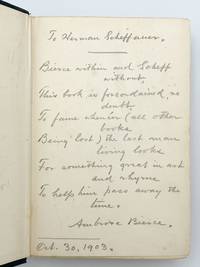 To Herman Scheffauer.
Bierce within and Scheff
without,
This book is foreordained, no
doubt,
To fame when (all other
books
Being lost) the last man
living looks
For something great in art
and rhyme
To help him pass away the
time.
Ambrose Bierce.
Oct. 30, 1903.